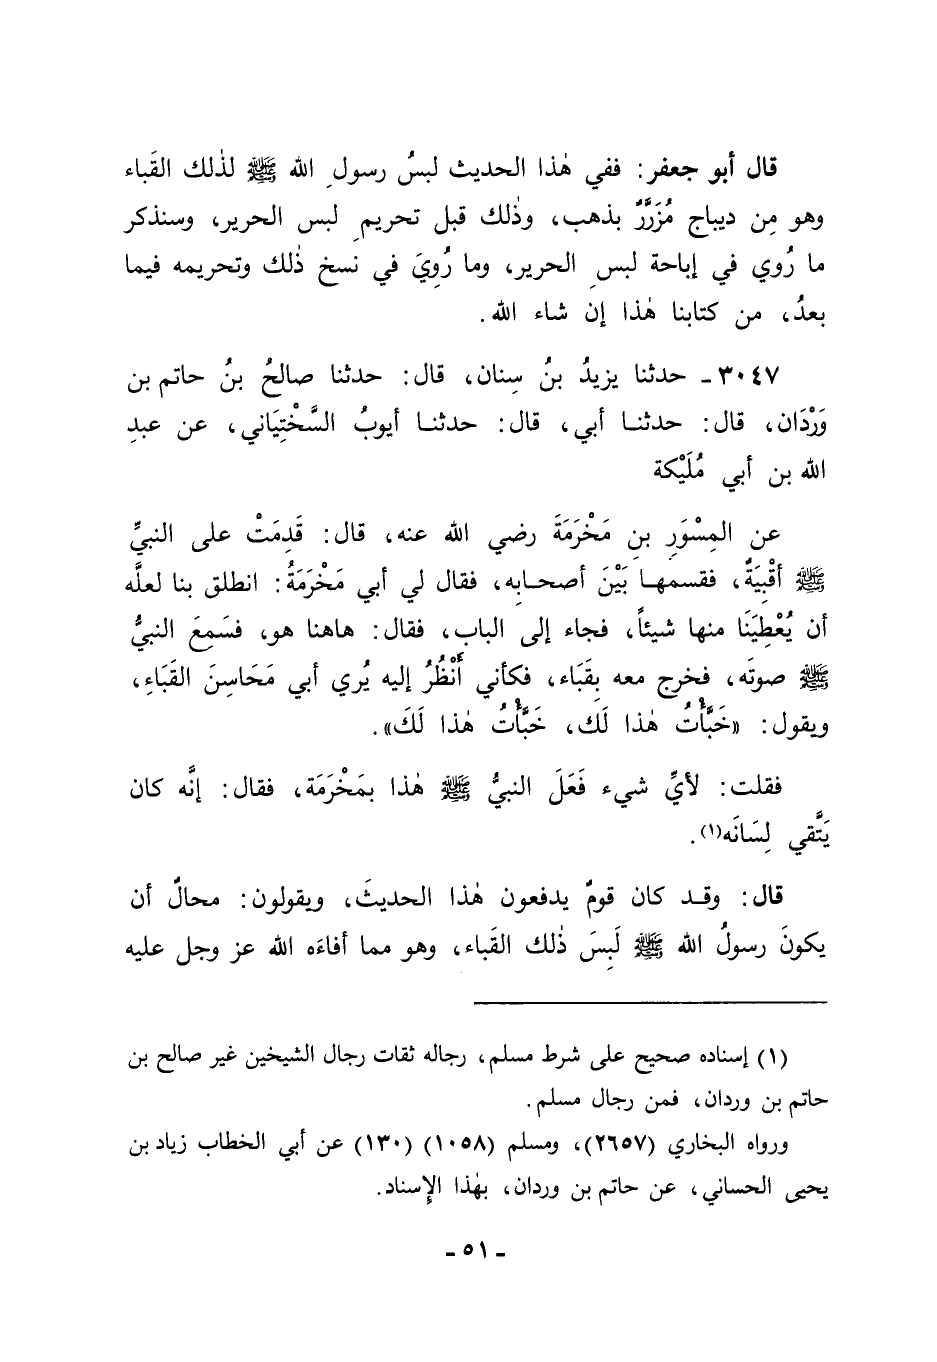 قال أبو جعفر: ففي هٰذا الحديث لبسُ رسولِ الله ﷺ لذٰلك القَباء
وهو مِن ديباج مُزَرَّرٌ بذهب، وذٰلك قبل تحريمِ لبس الحرير، وسنذكر
ما رُوي في إباحة لبسِ الحرير، وما رُوِيَ في نسخ ذٰلك وتحريمه فيما
بعدُ، من كتابنا هٰذا إن شاء الله.
٣٠٤٧ـ حدثنا يزيدُ بنُ سِنان، قال: حدثنا صالحُ بنُ حاتم بن
وَرْدَان، قال: حدثنـا أبي، قال: حدثنـا أيوبُ السَّخْتِيَاني، عن عبدِ
الله بن أبي مُلَيْكة
عن المِسْوَرِ بنِ مَخْرَمَةَ رضي الله عنه، قال: قَدِمَتْ على النبيِّ
ﷺ أقْبِيَةٌ، فقسمهـا بَيْنَ أصحـابِه، فقال لي أبي مَخْرَمَةُ: انطلق بنا لعلَّه
أن يُعْطِيَنَا منها شيئاً، فجاء إلى الباب، فقال: هاهنا هو، فسَمِعَ النبيُّ
ﷺ صوتَه، فخرج معه بِقَبَاء، فكأني أَنْظُرُ إليه يُري أبي مَحَاسِنَ القَبَاءِ،
ويقول: «خَبَّأْتُ هٰذا لَك، خَبَّأْتُ هٰذا لَكَ».
فقلت: لأيِّ شيء فَعَلَ النبيُّ ﷺ هٰذا بمَخْرَمَة، فقال: إنَّه كان
يَتَّقي لِسَانَه(١).
قال: وقـد كان قومٌ يدفعون هٰذا الحديثَ، ويقولون: محالٌ أن
يكونَ رسولُ الله ﷺ لَبِسَ ذٰلك القَباء، وهو مما أفاءَه الله عز وجل عليه
(١) إسناده صحيح على شرط مسلم، رجاله ثقات رجال الشيخين غير صالح بن
حاتم بن وردان، فمن رجال مسلم.
ورواه البخاري (٢٦٥٧)، ومسلم (١٠٥٨) (١٣٠) عن أبي الخطاب زياد بن
يحيى الحساني، عن حاتم بن وردان، بهٰذا الإِسناد.
ـ ٥١ ـ